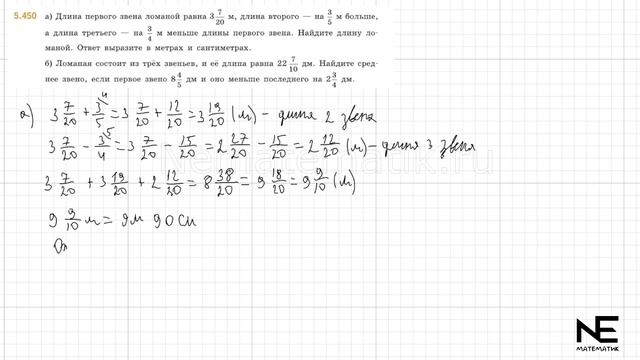 5.450 а) Длина первого звена ломаной равна 3 7/20 м, длина второго — на 3/5 м больше,
а длина третьего — на 3/4 м меньше длины первого звена. Найдите длину ло-
маной. Ответ выразите в метрах и сантиметрах.
б) Ломаная состоит из трёх звеньев, и её длина равна 22 7/10 дм. Найдите сред-
нее звено, если первое звено 8 4/5 дм и оно меньше последнего на 2 3/4 дм.
а) 3 7/20 + 3/5 ⁴ = 3 7/20 + 12/20 = 3 19/20 (м) - длина 2 звена
3 7/20 - 3/4 ⁵ = 3 7/20 - 15/20 = 2 27/20 - 15/20 = 2 12/20 (м) - длина 3 звена
3 7/20 + 3 19/20 + 2 12/20 = 8 38/20 = 9 18/20 = 9 9/10 (м)
9 9/10 м = 9м 90 см
От
NE
МАТЕМАТИК